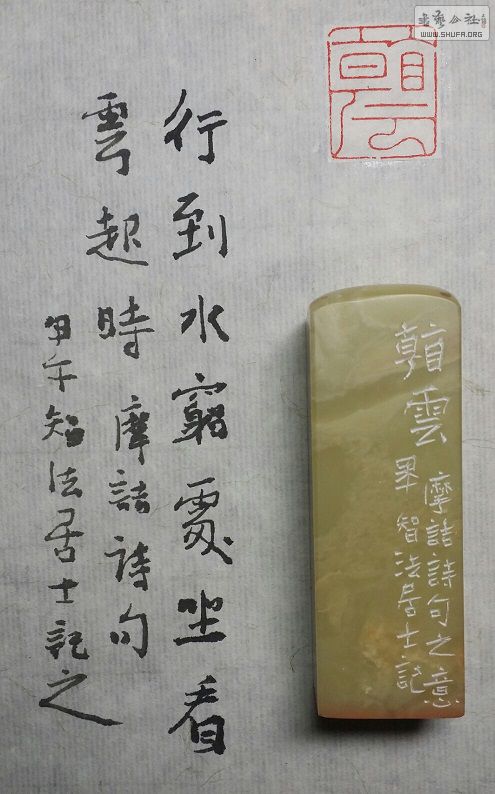 書藝公社
WWW.SHUFA.ORG
行到水窮處坐看
雲起時摩詰詩句
甲午智法居士記之
雲
摩詰詩句之意
智法居士記